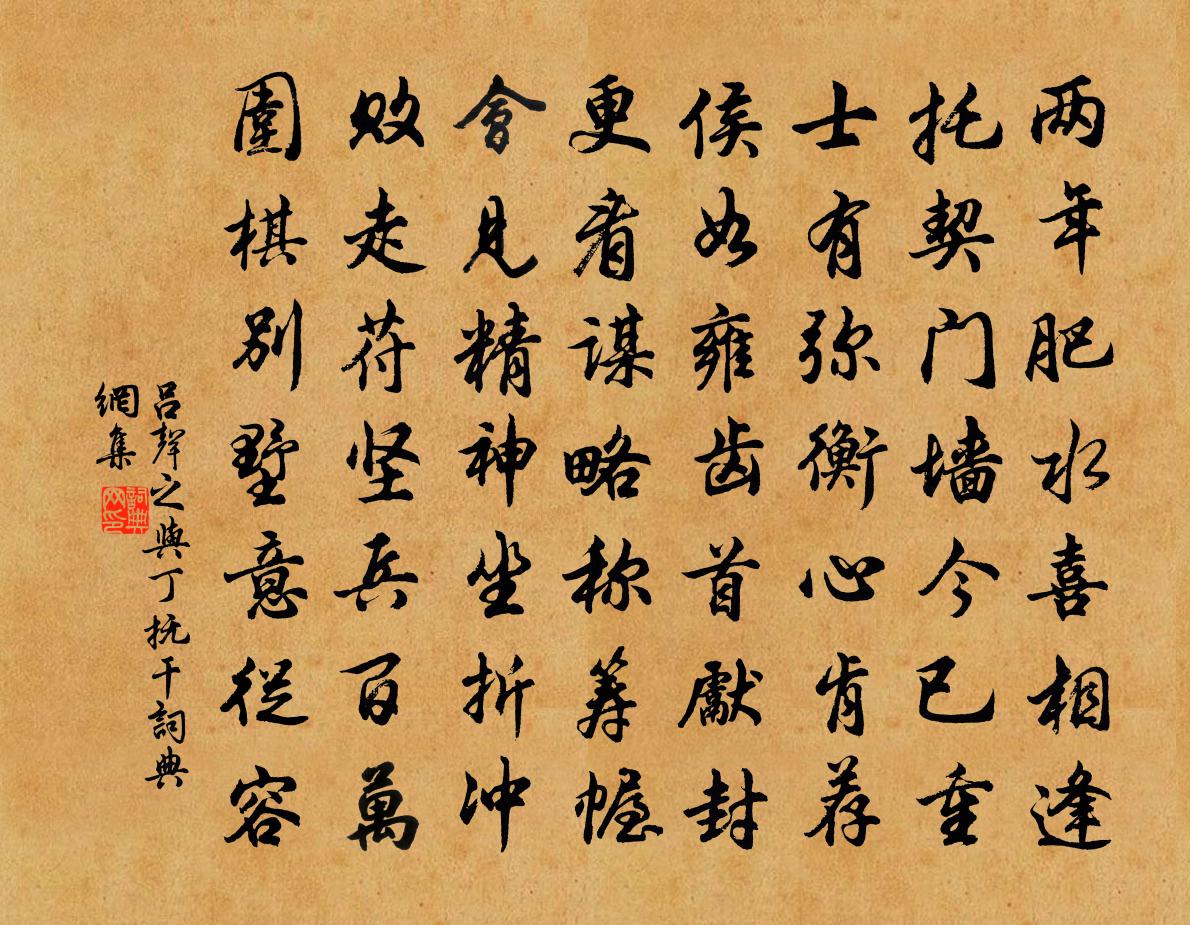 两年肥水喜相逢
托契门墙今已重
士有弥衡心肯荐
侯如雍齿首獻封
更看谋略称筹幄
會見精神坐折冲
败走苻坚兵百萬
圍棋别墅意從容
吕聲之與丁抚干詞典
網集
詞典
网印